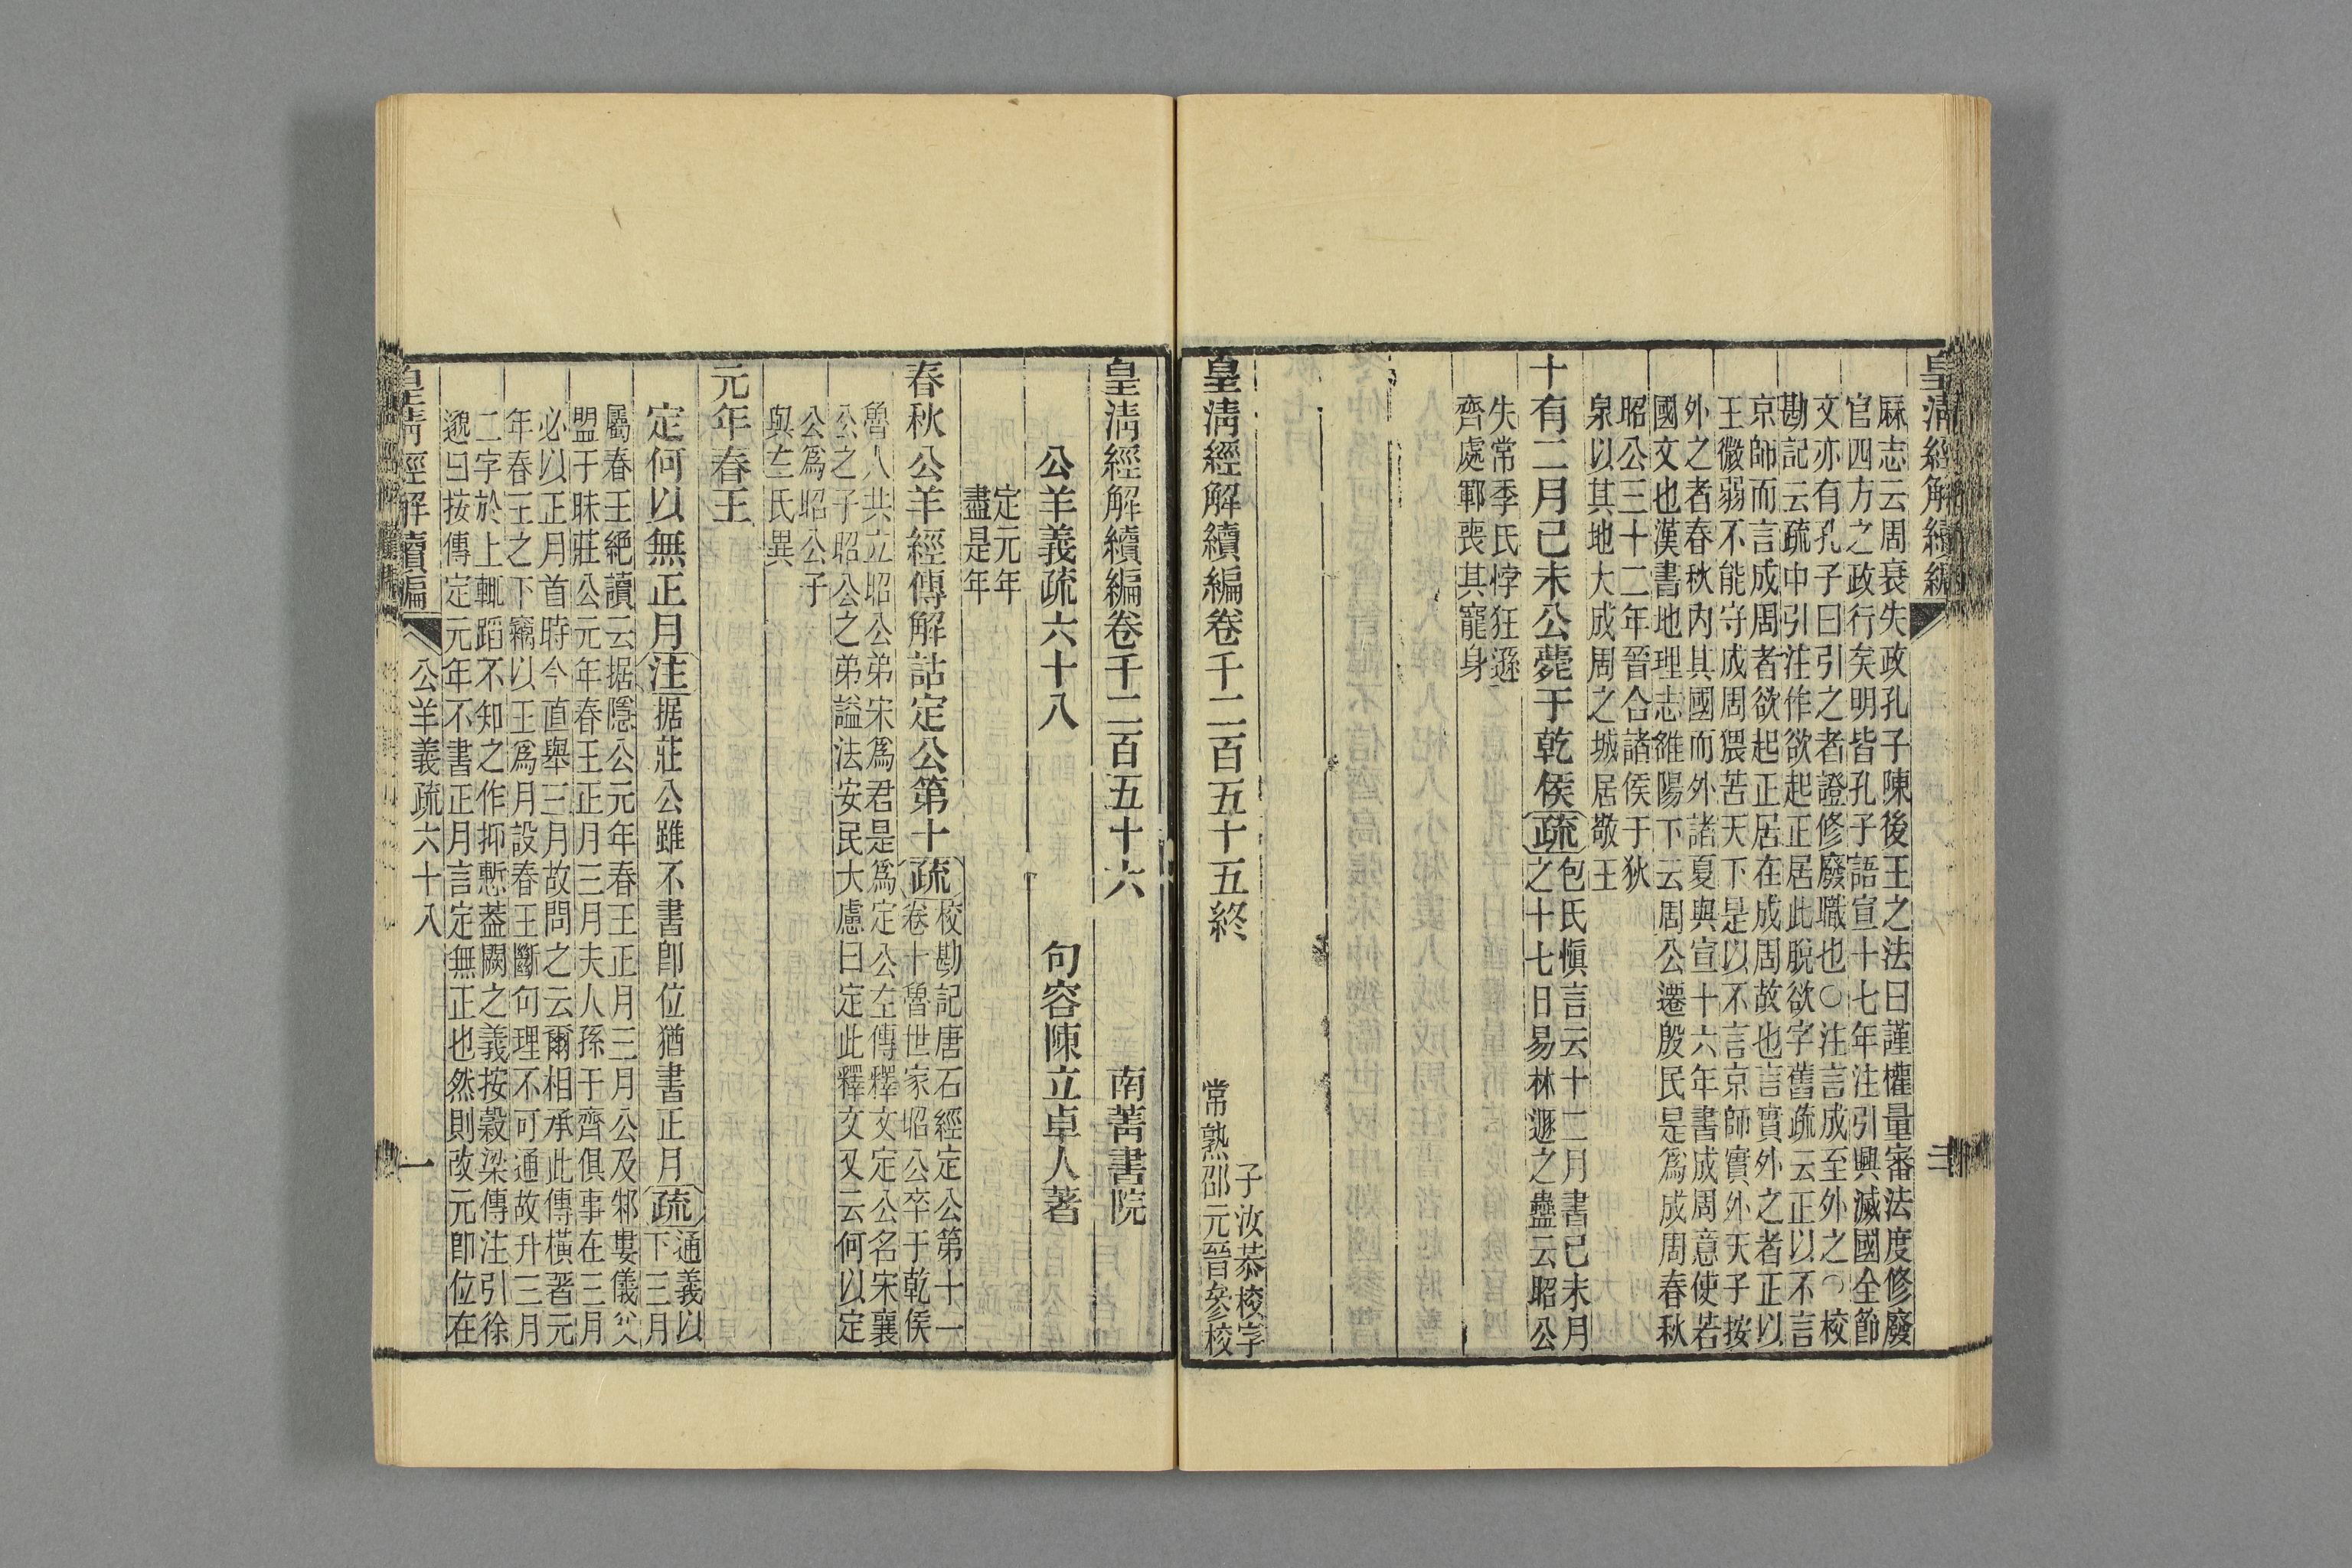 皇淸經解續編
厤志云周衰失政孔子陳後王之法曰謹權量審法度修廢
官四方之政行矣明皆孔子語宣十七年注引興滅國全節
文亦有孔子曰引之者證修廢職也○注言成至外之○校
勘記云疏中引注作欲起正居此脫欲字舊疏云正以不言
京師而言成周者欲起正居在成周故也言實外之者正以
王微弱不能守成周猥苦天下是以不言京師實外天子按
外之者春秋內其國而外諸夏與宣十六年書成周意使若
國文也漢書地理志雒陽下云周公遷殷民是爲成周春秋
昭公三十二年晉合諸侯于狄
泉以其地大成周之城居敬王
十有二月己未公薨于乾侯疏
包氏愼言云十二月書己未月
之十七日易林遯之蠱云昭公
失常季氏悖狂遜
齊處鄆喪其寵身
皇淸經解續編卷千二百五十五終
子汝恭校字
常熟邵元晉參校
皇淸經解續編卷千二百五十六
南菁書院
公羊義疏六十八
句容陳立卓人著
定元年
盡是年
春秋公羊經傳解詁定公第十疏
校勘記唐石經定公第十一
卷十魯世家昭公卒于乾侯
魯人共立昭公弟宋爲君是爲定公左傳釋文定公名宋襄
公之子昭公之弟謚法安民大慮曰定此釋文又云何以定
公爲昭公子
與左氏異
元年春王
定何以無正月注据莊公雖不書卽位猶書正月疏
通義以
下三月
屬春王絕讀云据隱公元年春王正月三月公及邾婁儀父
盟于眛莊公元年春王正月三月夫人孫于齊俱事在三月
必以正月首時今直舉三月故問之云爾相承此傳橫著元
年春王之下竊以王爲月設春王斷句理不可通故升三月
二字於上輒蹈不知之作抑慙葢闕之義按穀梁傳注引徐
邈曰按傳定元年不書正月言定無正也然則改元卽位在
皇淸經解續編
公羊義疏六十八
一